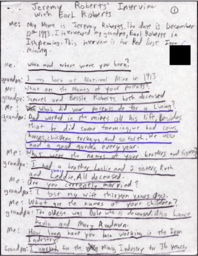 Jeremy Roberts' Interview
with Earl Roberts
①
Me: My Name is Jeremy Roberts. The date is December
1993. I interviewed my grandpa, Earl Roberts in
Ishpeming. This interview is for Red Dust Iron
Mining.
Me: When and where were you born?
grandpa: I was born at National Mine in 1913
Me: What are the Names of your parents?
grandpa: and Bessie Roberts, both deceased
Me: What did your parents do for a living?
grandpa: Dad worked in the mines all his life, besides
that he did some farming, we had cows,
a good garden every year.
Me: What were the names of your brothers and sisters
grandpa: I had a brother, Leslie and 2 sisters, Ruth
and All deceased.
Me: Are you currently married?
grandpa: I lost my wife thirteen years ago.
Me: What are the names of your children?
grandpa: The oldest was Dale who is deceased, also
and Mary
Me: How long have you been working in the Iron
Industry?
grandpa: I worked for the Mining Industry for 36 years